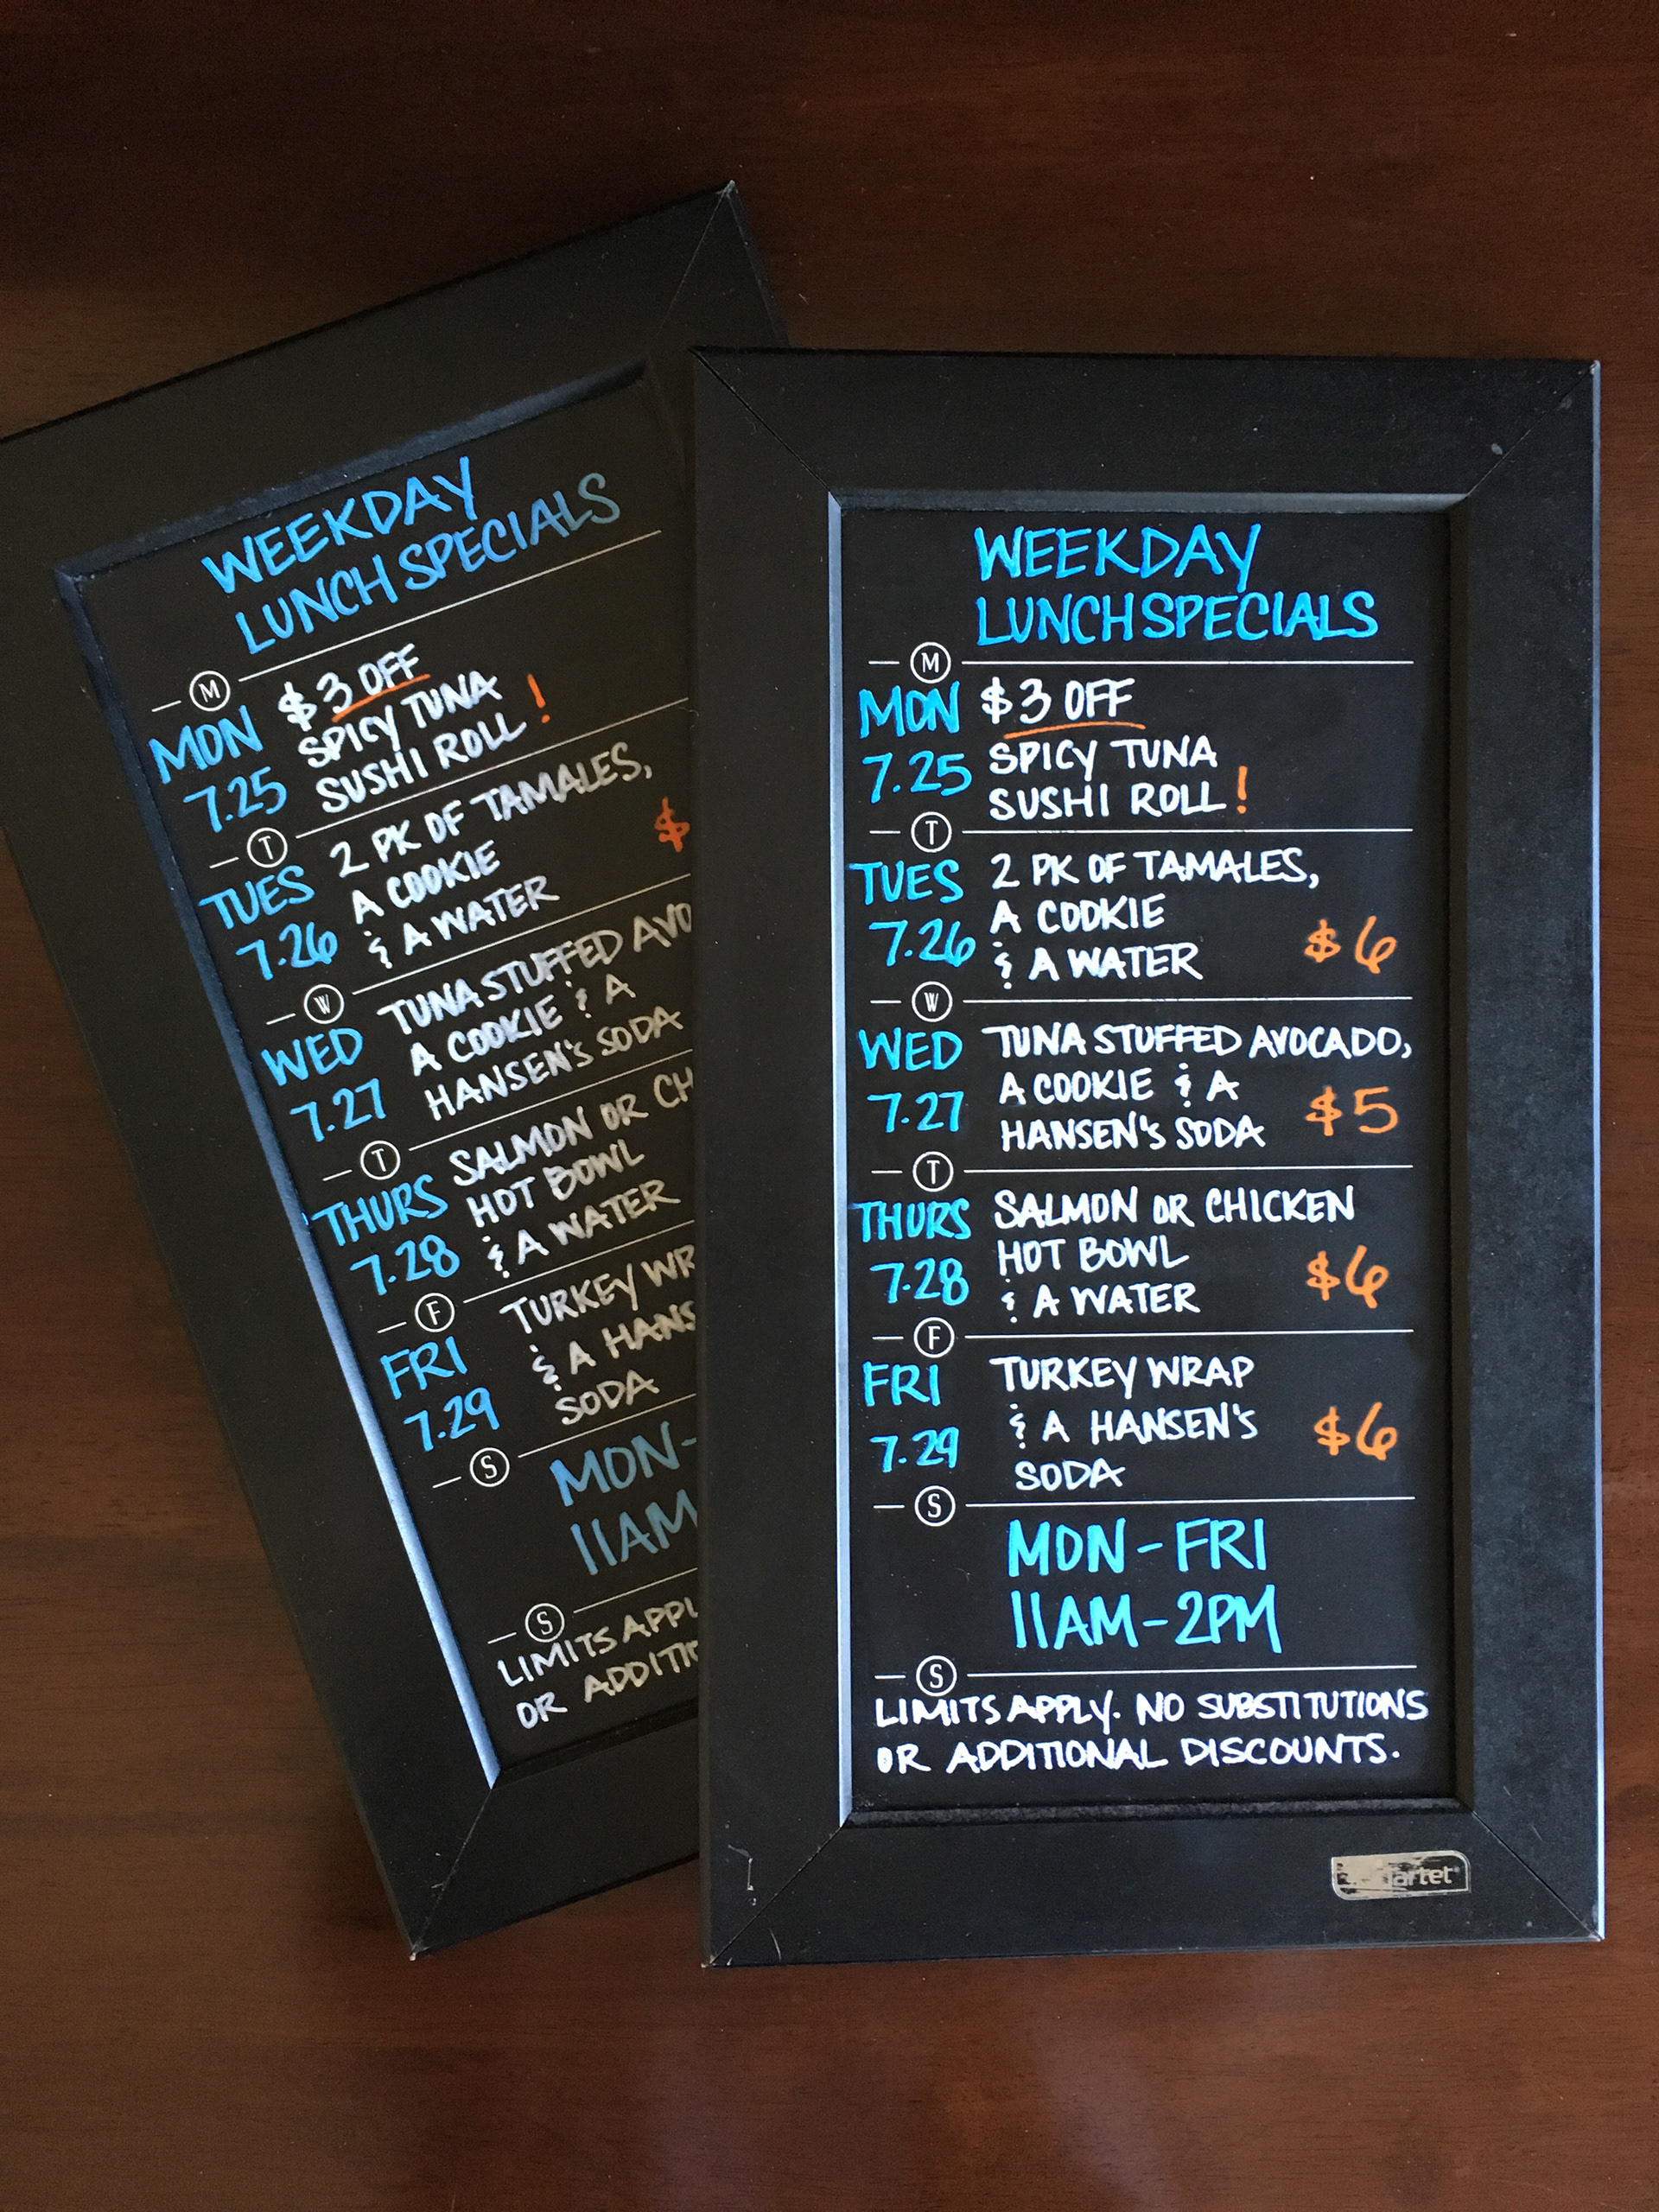 WEEKDAY
LUNCH SPECIALS
M
MON $3 OFF
7.25 SPICY TUNA
SUSHI ROLL!
T
TUES 2 PK OF TAMALES,
A COOKIE $
7.26 & A WATER
W
WED TUNA STUFFED
A COOKIE & A
7.27 HANSEN'S SODA
T
THURS SALMON OR
HOT BOWL
7.28 & A WATER
F
FRI TURKEY
& A
7.29 SODA
S
MON-
11AM
S
LIMITS
OR
WEEKDAY
LUNCH SPECIALS
M
MON $3 OFF
7.25 SPICY TUNA
SUSHI ROLL!
T
TUES 2 PK OF TAMALES,
A COOKIE
7.26 & A WATER $6
W
WED TUNA STUFFED AVOCADO,
A COOKIE & A
7.27 HANSEN'S SODA $5
T
THURS SALMON OR CHICKEN
HOT BOWL
7.28 & A WATER $6
F
FRI TURKEY WRAP
& A HANSEN'S $6
7.29 SODA
S
MON-FRI
11AM-2PM
S
LIMITS APPLY. NO SUBSTITUTIONS
OR ADDITIONAL DISCOUNTS.